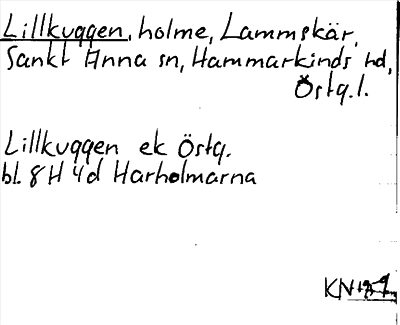 Lillkuggen, holme, Lammskär,
Sankt Anna sn, Hammarkinds hd,
Östg.l.
Lillkuggen ek Östg.
bl. 8H 4d Harholmarna
KN